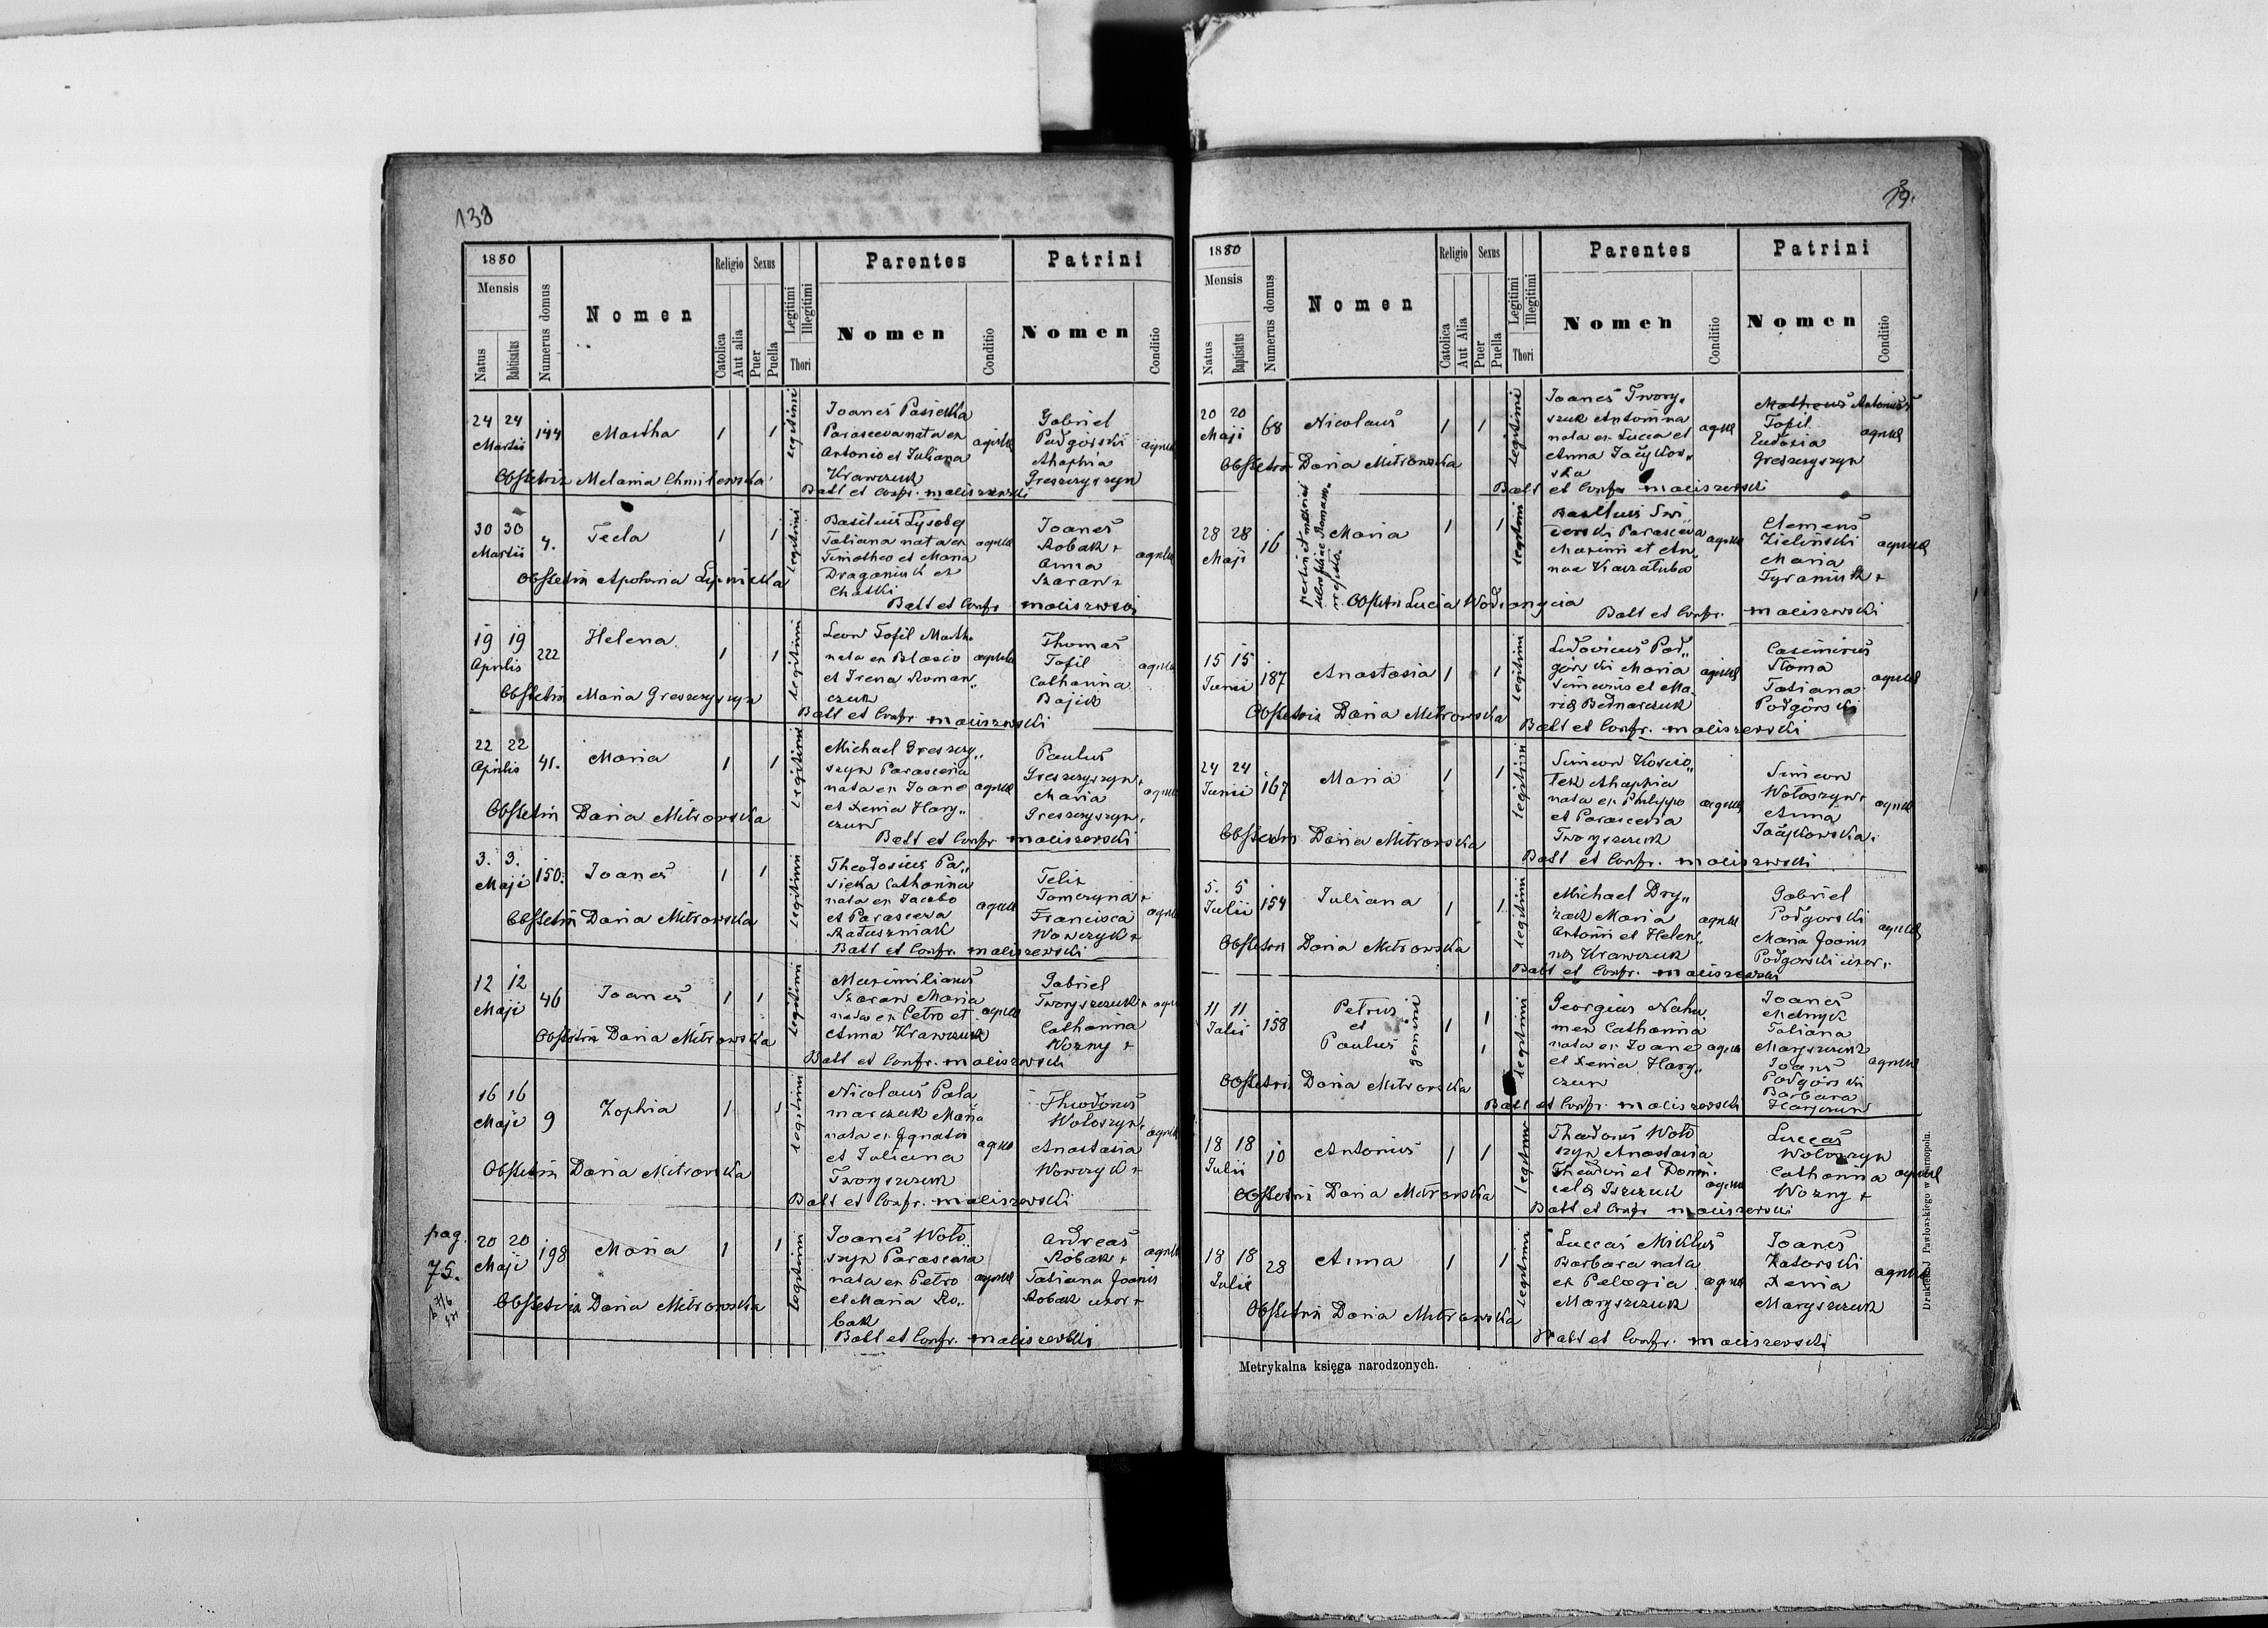 138
1880
Mensis
Natus
Babtisatus
Numerus domus
Nomen
Religio
Catolica
Aut alia
Sexus
Puer
Puella
Legitimi
Illegitimi
Thori
Parentes
Nomen
Conditio
Patrini
Nomen
Conditio
24 24
Martii
144
Martha
1 1
legitimi
Joanes Pasieka
Parasceva nata ex
Antonio et Juliana
Krawczuk
agricol
Gabriel
Podgórski
Ahaphia
Greszczyszyn
Obstetrix Melania Chmilewska
Bapt et Confr. Maliszewski
30 30
Martii
4.
Tecla
1 1
legitimi
Basilius Lysobey
Tatiana nata ex
Timotheo et Maria
Draganiuk ex
Chatki
agricol
Joanes
Robak +
Anna
Szaran +
agricol
Obstetrix Apolonia Lipnicka
Bapt et Confr Maliszewski
19 19
Aprilis
222
Helena
1 1
legitimi
Leon Tofil Martha
nata ex Blasio
et Irena Roman„
czuk
agricola
Thomas
Tofil
Catharina
Bajuk
agricol
Obstetrix Maria Greszczyszyn
Bapt et Confr Maliszewski
22 22
Aprilis
41.
Maria
1 1
legitimi
Michael Greszczy„
szyn Parascevia
nata ex Joane
et Xenia Hary„
czun
agricol
Paulus
Greszczyszyn +
Maria
Greszczyszyn +
Obstetrix Daria Mitrowska
Bapt et Confr Maliszewski
3. 3.
Maji
150.
Joanes
1 1
legitimi
Theodosius Pa„
sieka Catharina
nata ex Jacobo
et Parasceva
Ratuszniak
agricol
Felix
Tomczyna +
Francisca
Wowczyk +
Obstetrix Daria Mitrowska
Bapt et Confr. Maliszewski
12 12
Maji
46
Joanes
1 1
legitimi
Maximilianus
Szaran Maria
nata ex Petro et
Anna Krawczuk
agricol
Gabriel
Tworyszczuk +
Catharina
Wozny +
Obstetrix Daria Mitrowska
Bapt et Confr. Maliszewski
16 16
Maji
9
Zophia
1 1
legitimi
Nicolaus Pala„
marczuk Maria
nata ex Ignatio
et Juliana
Tworyszczuk
agricol
Theodorus
Wołoszyn +
Anastasia
Wowczyk +
Obstetrix Daria Mitrowska
Bapt et Confr. Maliszewski
pag.
75.
20 20
Maji
198
Maria
1 1
legitimi
Joanes Woło„
szyn Parascevia
nata ex Petro
et Maria Ro„
bak
agricol
Andreas
Robak +
Tatiana Joanis
Robak uxor +
Obstetrix Daria Mitrowska
Bapt et Confr. Maliszewski
1880
Mensis
Natus
Baptisatus
Numerus domus
Nomen
Religio
Catolica
Aut Alia
Sexus
Puer
Puella
Legitimi
Illegitimi
Thori
Parentes
Nomen
Conditio
Patrini
Nomen
Conditio
20 20
Maji
68
Nicolaus
1 1
legitimi
Joanes Twory„
szuk Antonina
nata ex Lucca et
Anna Jaćykow„
ska
agricol
Matheus Antonius
Tofil
Eudoxia
Greszczyszyn
agricol
Obstetrix Daria Mitrowska
Bapt et Confr Maliszewski
28 28
Maji
16
Maria
1 1
legitimi
Basilius Swi„
derski Parascevia
Maximi et An„
nae Kaczałuba
agricol
Clemens
Zieliński
Maria
Tyraniuk +
agricol
Obstetrix Lucia
Bapt et Confr. Maliszewski
15 15
Junii
187
Anastasia
1 1
legitimi
Ludovicus Pod„
górski Maria
Simeonis et Ma„
riæ Bednarczuk
agricol
Casimirus
Słoma
Tatiana
Podgórski
agricol
Obstetrix Daria Mitrowska
Bapt et Confr. Maliszewski
24 24
Junii
167
Maria
1 1
legitimi
Simeon Koscio„
łek Ahaphia
nata ex Philippo
et Parascevia
Tworyszczuk
agricol
Simeon
Wołoszyn +
Anna
Jaćykowska +
agricol
Obstetrix Daria Mitrowska
Bapt et Confr. Maliszewski
5. 5
Julii
154
Juliana
1 1
legitimi
Michael Dry„
zak Maria
Antonii et Hele„
næ Krawczuk
agricol
Gabriel
Podgorski
Maria Joanis
Podgorski uxor +
agricol
Obstetrix Daria Mitrowska
Bapt et Confr. Maliszewski
11 11
Julii
158
Petrus
et
Paulus
gemini
1 1
1
legitimi
Georgius Nahu„
men Catharina
nata ex Joane
et Xenia Hary„
czun
agricol
Joanes
Melnyk
Tatiana
Maryszczuk
Joanes
Podgórski
Barbara
Haryczun
agricol
Obstetrix Daria Mitrowska
Bapt et Confr. Maliszewski
18 18
Julii
10
Antonius
1 1
legitimi
Theodorus Woło„
szyn Anastasia
Theodori et Domi„
celæ Iszczuk
agricol
Luccas
Wołoszyn
Catharina
Wozny +
agricol
Obstetrix Daria Mitrowska
Bapt et Confr Maliszewski
18 18
Julii
28
Anna
1 1
legitimi
Luccas Miklus
Barbara nata
ex Pelagia
Maryszczuk
agricol
Joanes
Zatorski
Xenia
Maryszczuk
agricol
Obstetrix Daria Mitrowska
Bapt et Confr. Maliszewski
Metrykalna księga narodzonych.
Drukiem J. Pawłowskiego w Tarnopolu.